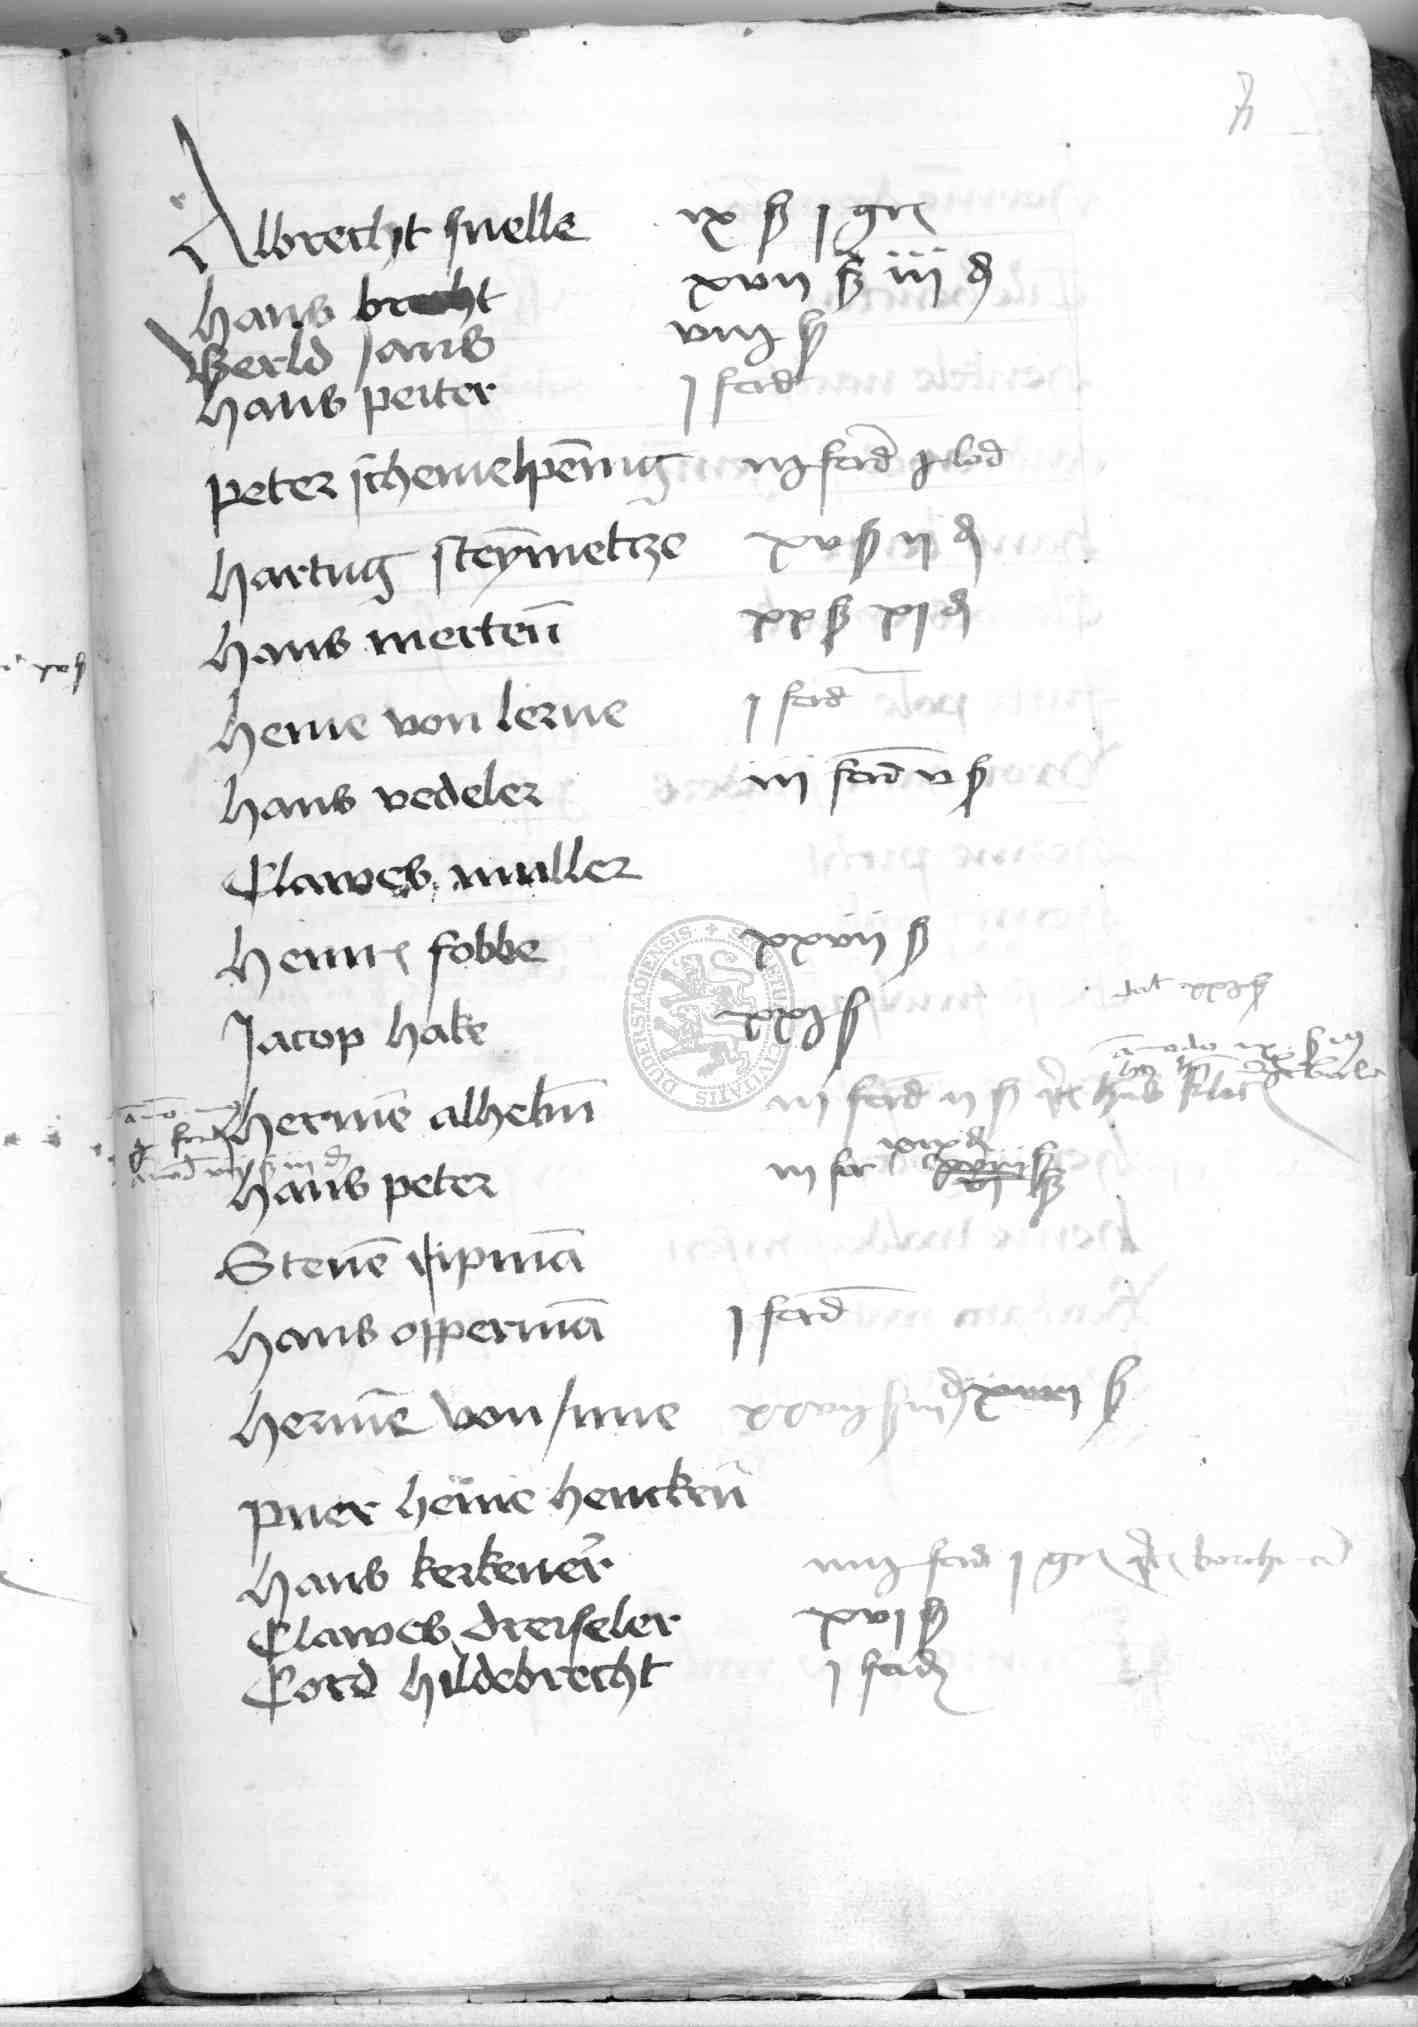 Albrecht snelle ix ß j gr
hans brecht xvii ß iii ₰
Werld Jans viij ß
hans peiter j ferd
peter schemelpēnig iij ferd j lod
hartug steȳmetze xv ß ii ₰
hans merteñ xx ß xj ₰
heine von lerne j ferd
hans vedeler iii ferd v ß
Clawes muller
henric fobbe xxvii ß
dat xxj ß
Jacop hake xxj ß
hermē alhelm̄ iij ferd ii ß
hans peter iij fer
Stenē sipmā
hans oppermā j ferd
hermē von xxvij ß iij ₰ xviii ß
puer heīne henckeñ
hans kerkener iiij ferd j gr
Clawes dreiseler xvj ß
Cord hildebrecht j ferd
SECRETUM CIVITATIS DUDERSTADIENSIS